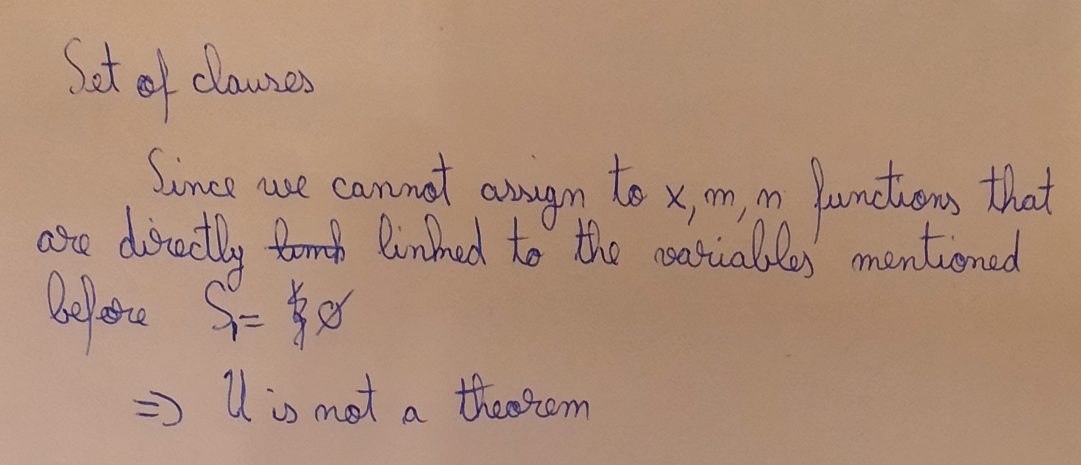 Set of clauses
Since we cannot assign to x, m, n functions that
are directly linked to the variables mentioned
before S₁= ∅
=> U is not a theorem